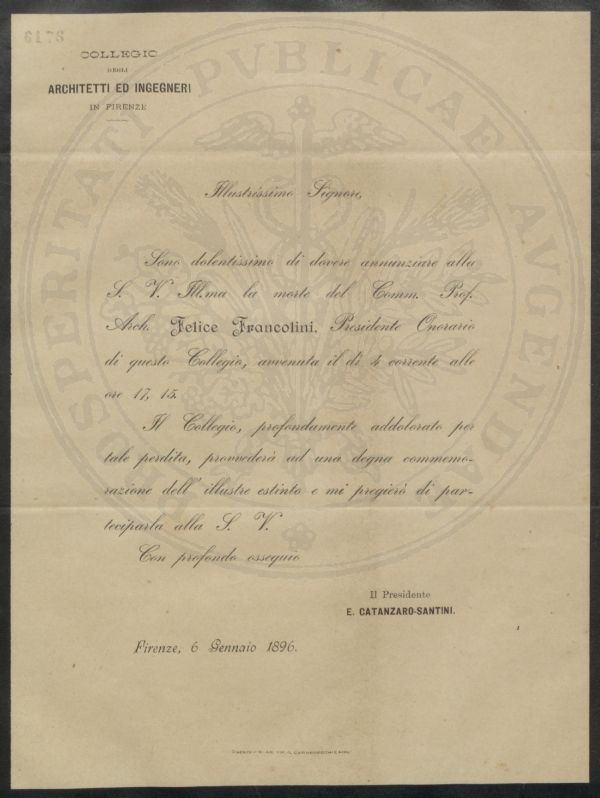 6173
COLLEGIO
DEGLI
ARCHITETTI ED INGEGNERI
IN FIRENZE
PROSPERITATI PVBLICAE AVGENDAE
Illustrissimo Signore,
Sono dolentissimo di dovere annunziare alla
S. V. Ill.ma la morte del Comm. Prof.
Arch. Felice Francolini, Presidente Onorario
di questo Collegio, avvenuta il dì 4 corrente alle
ore 17, 15.
Il Collegio, profondamente addolorato per
tale perdita, provvederà ad una degna commemo-
razione dell' illustre estinto e mi pregierò di par-
teciparla alla S. V.
Con profondo ossequio
Il Presidente
E. CATANZARO-SANTINI.
Firenze, 6 Gennaio 1896.